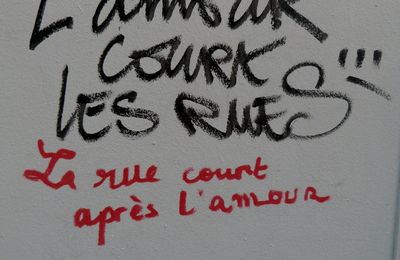 L'amour
COURT
LES RUES !!!
La rue court
après l'amour